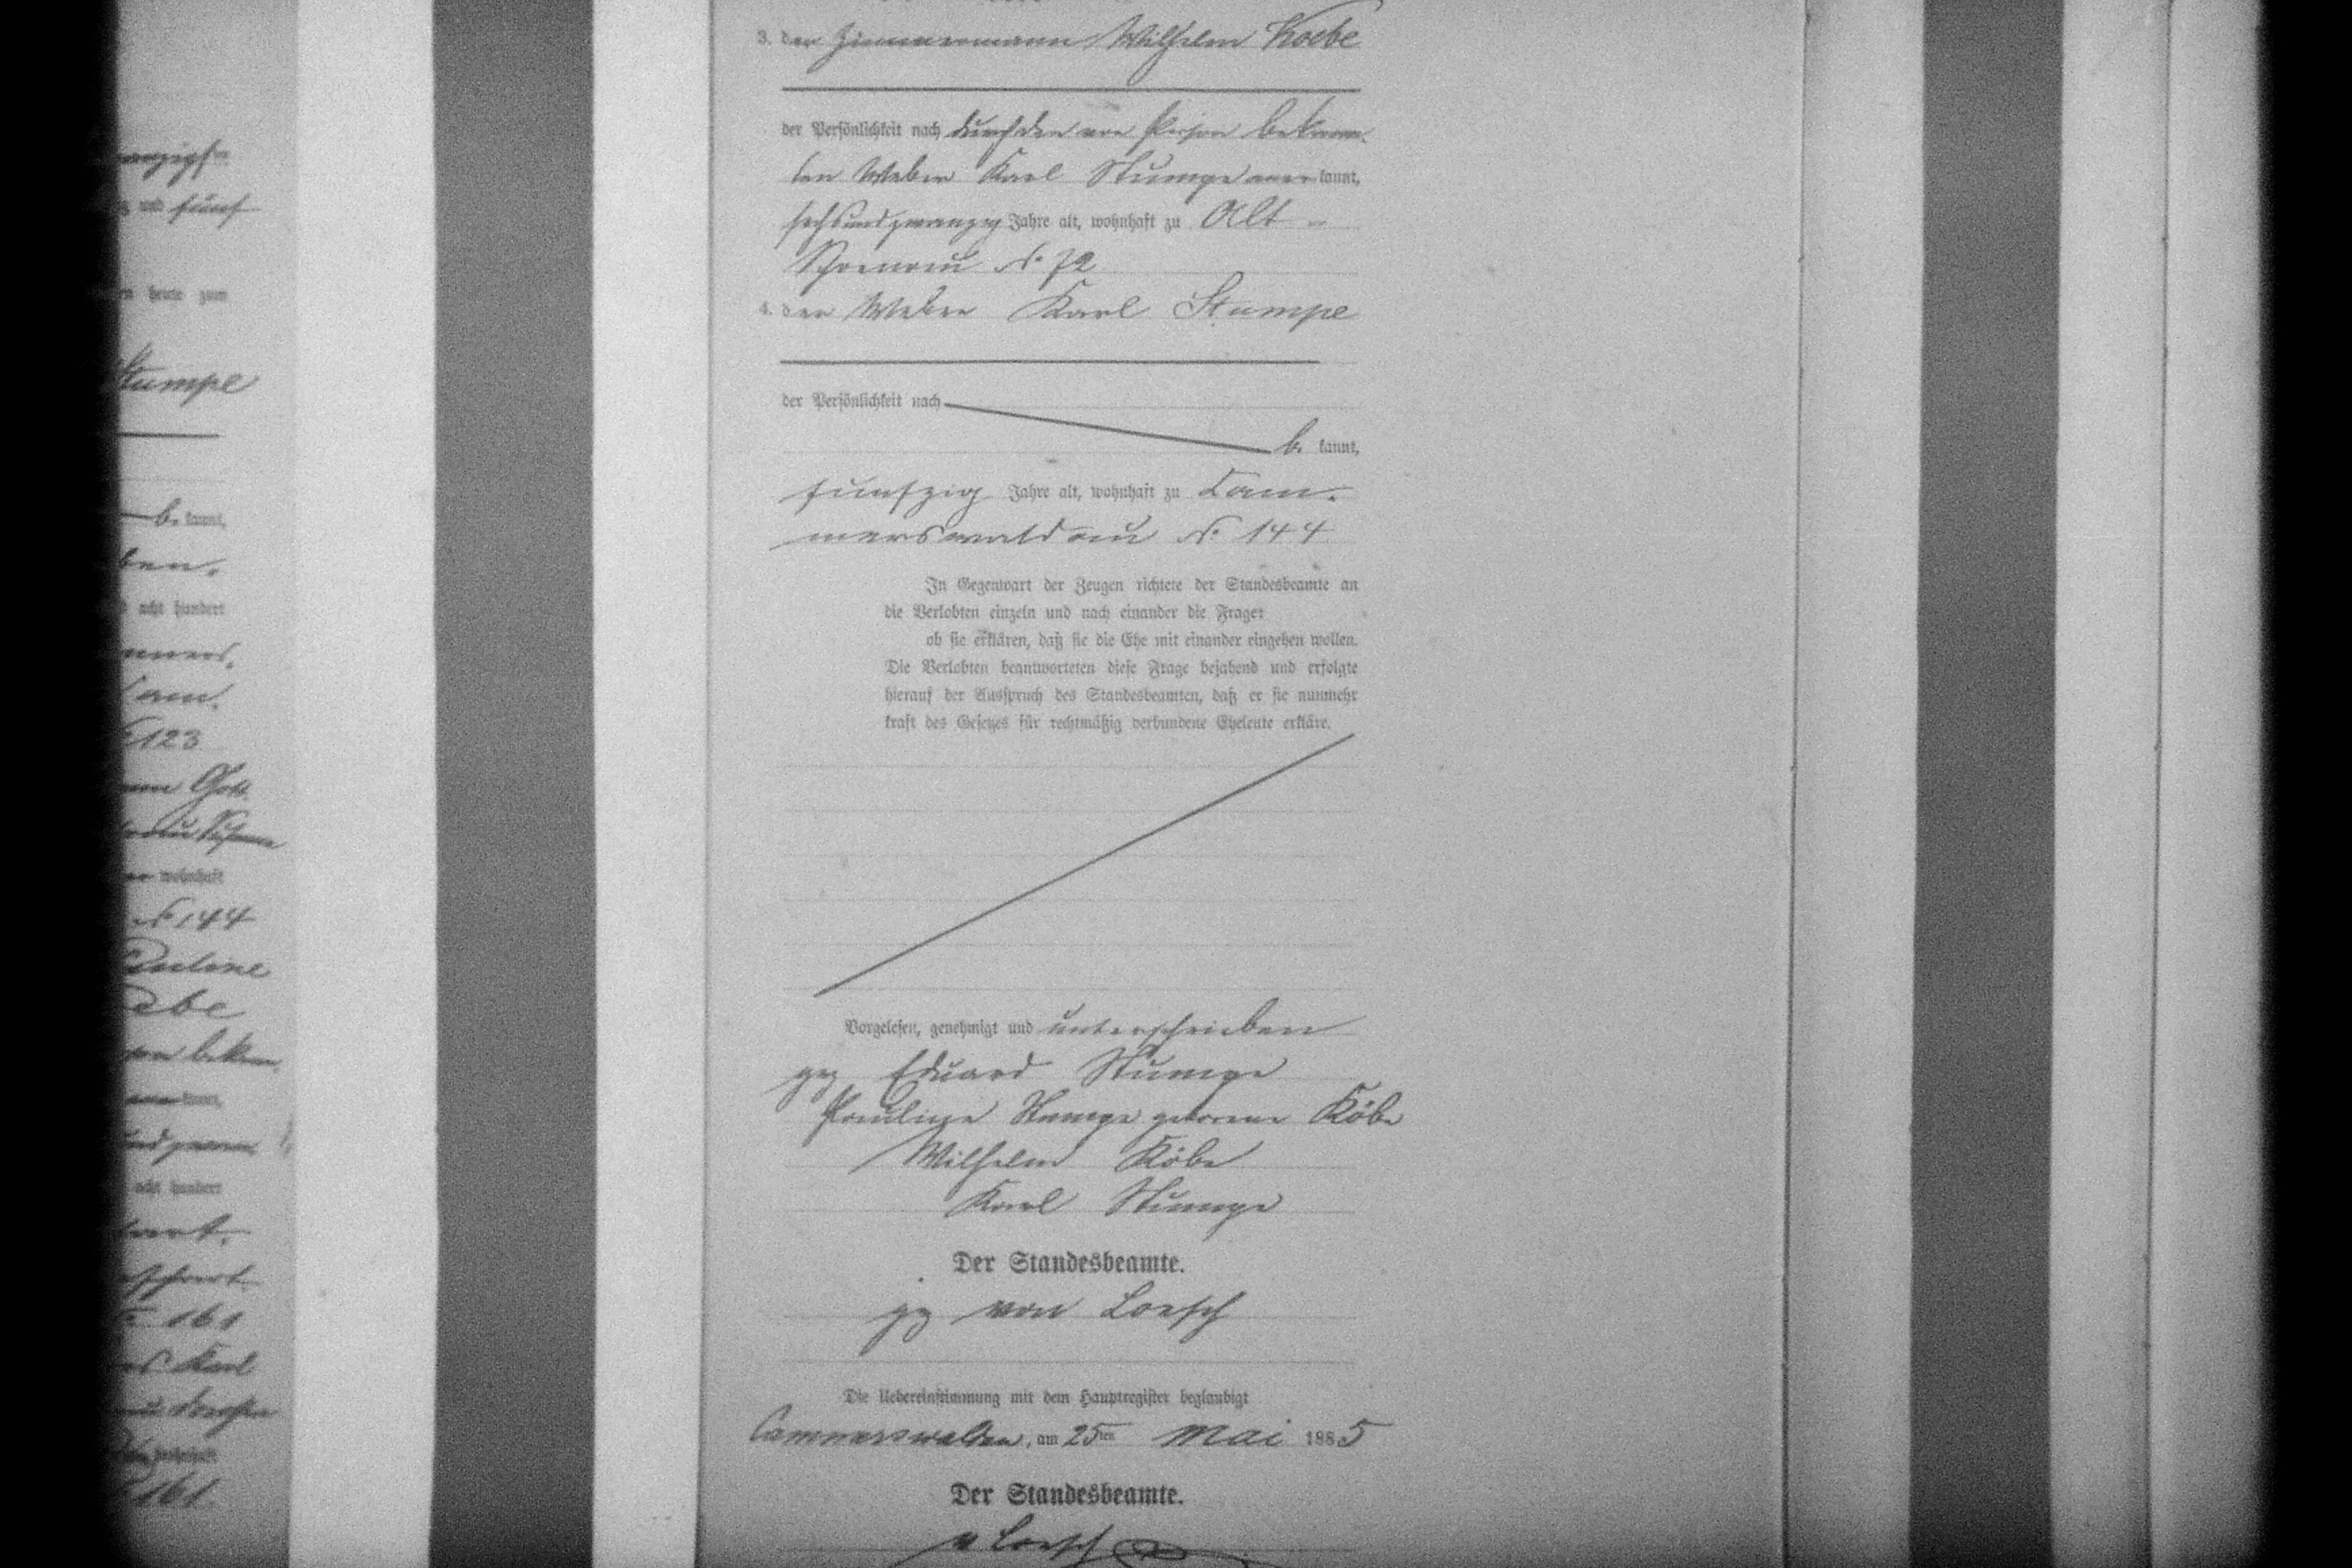 anzigst
und fünf
heute zum
Stumpe
b. kannt,
ben.
acht hundert
mers.
Cam.
123
Gott
wohnhaft
No 144
Pauline
bekan
kannt,
acht hundert
161
Karl
wohnhaft
161.
3. der Zimmermann Wilhelm Koebe
der Persönlichkeit nach durch den von Person bekann-
ten Weber Karl Stumpe anerkannt,
sechsundzwanzig Jahre alt, wohnhaft zu Alt-
Schoenau No 72
4. der Weber Karl Stumpe
der Persönlichkeit nach
b. kannt,
fünfzig Jahre alt, wohnhaft zu Cam-
merswaldau No 144
In Gegenwart der Zeugen richtete der Standesbeamte an
die Verlobten einzeln und nach einander die Frage:
ob sie erklären, daß sie die Ehe mit einander eingehen wollen.
Die Verlobten beantworteten diese Frage bejahend und erfolgte
hierauf der Ausspruch des Standesbeamten, daß er sie nunmehr
kraft des Gesetzes für rechtmäßig verbundene Eheleute erkläre.
Vorgelesen, genehmigt und unterschrieben
gez Eduard Stumpe
Pauline Stumpe geborene Köbe
Wilhelm Köbe
Karl Stumpe
Der Standesbeamte.
gz von Loesch
Die Uebereinstimmung mit dem Hauptregister beglaubigt
Cammerswaldau, am 25ten Mai 1885
Der Standesbeamte.
v Loesch